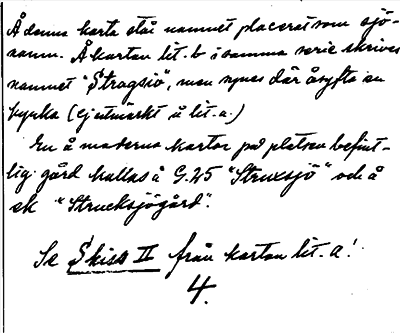 Å denna karta står namnet placerat som sjö-
namn. Å kartan lit. b i samma serie skrives
namnet "Stragsiö", men synes där åsyfta en
kyrka (ej utmärkt å lit. a.)
En å moderna kartor på platsen befint-
lig gård kallas å G.25 "Struxsjö" och å
ek "Strucksjögård".
Se Skiss II från kartan lit. a!
4.